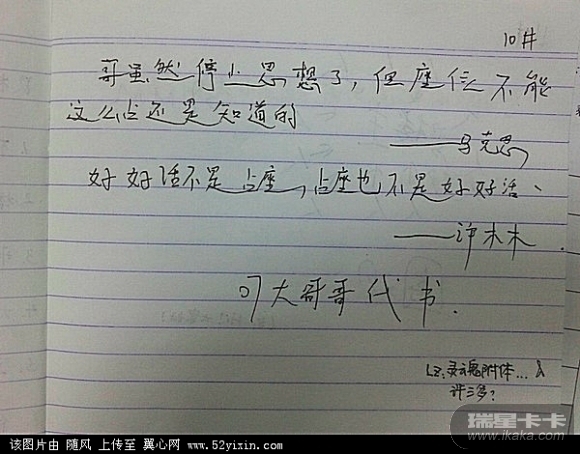 10井
哥虽然停止思想了，但座位不能
这么占还是知道的
——马克思
好好活不是占座，占座也不是好好活、
——许木木
叼大哥哥代书.
LZ:灵魂附体...
许三多?
瑞星卡卡
www.ikaka.com
该图片由 随风 上传至 翼心网 www.52yixin.com